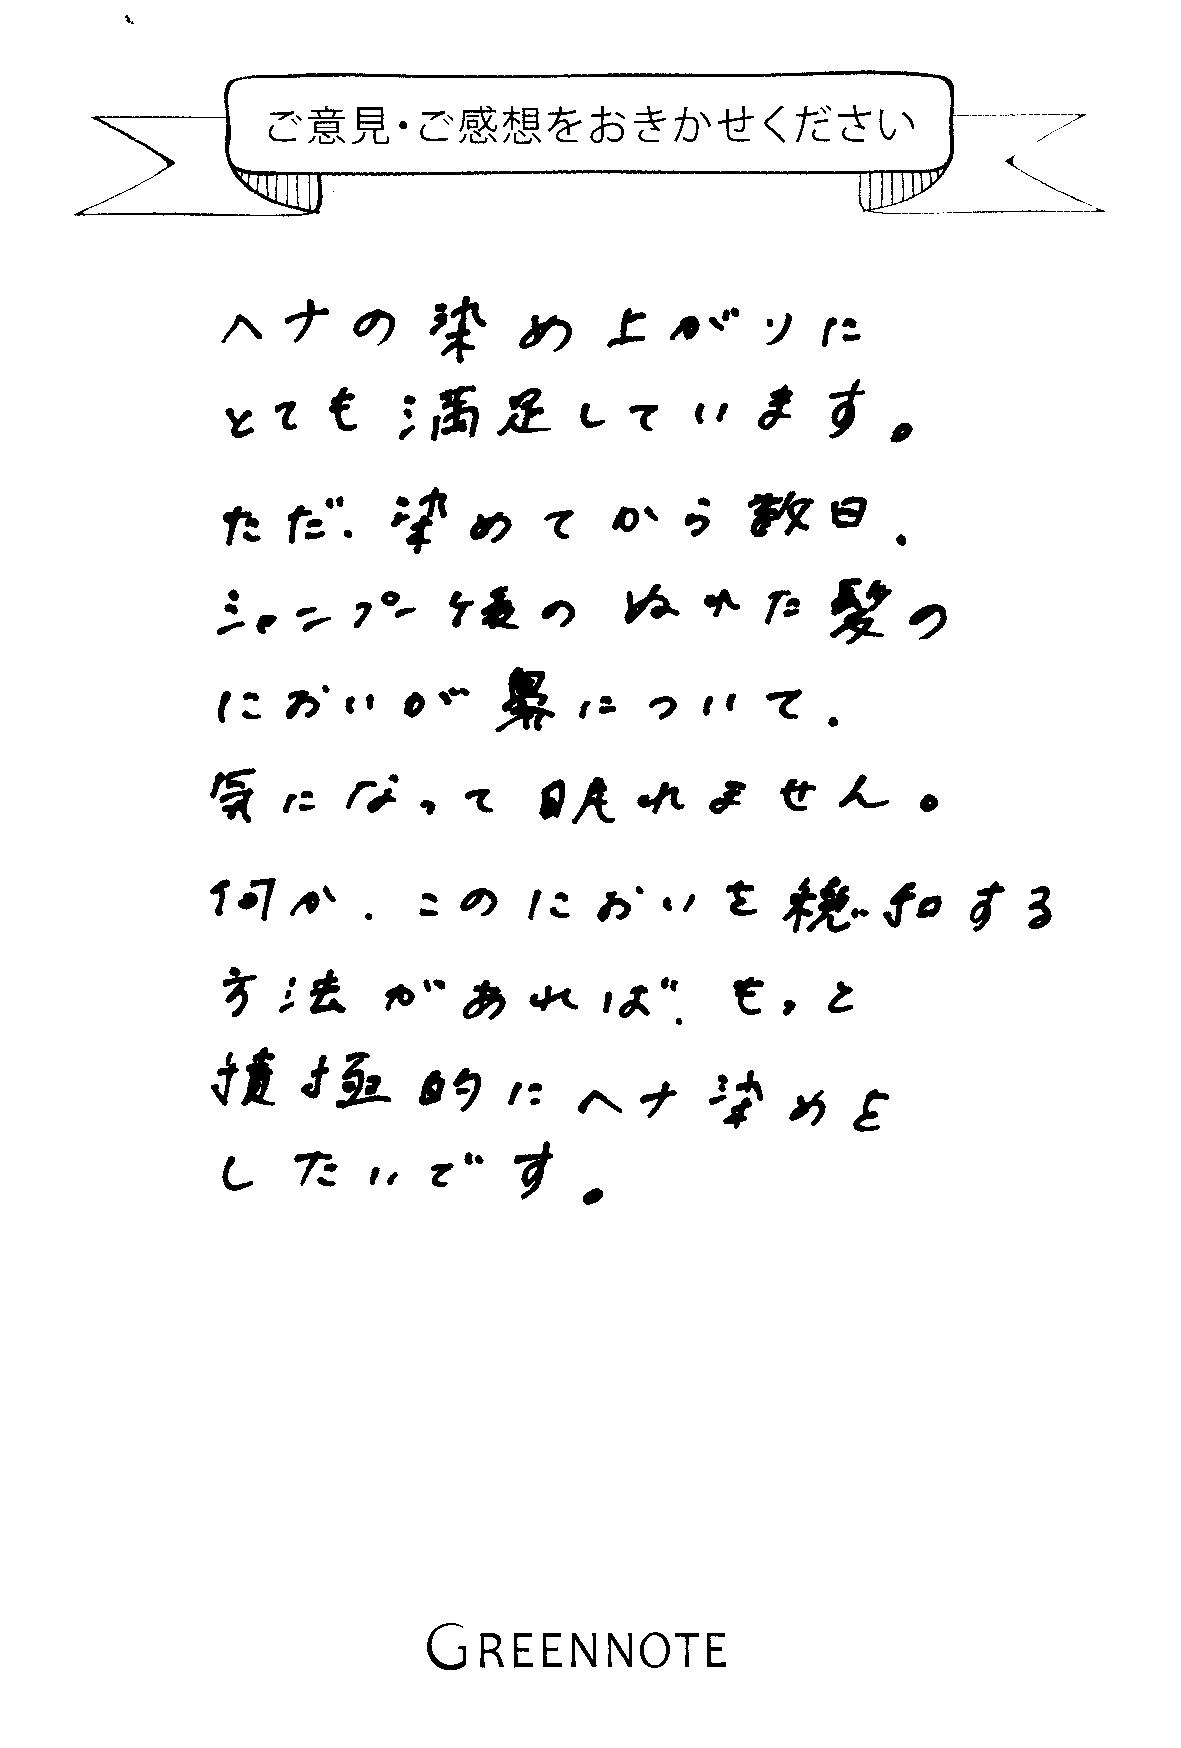 ご意見・ご感想をおきかせください
ヘナの染め上がりに
とても満足しています。
ただ、染めてから数日、
シャンプー後のぬれた髪の
においが鼻について、
気になって眠れません。
何か、このにおいを緩和する
方法があれば、もっと
積極的にヘナ染めを
したいです。
GREENNOTE